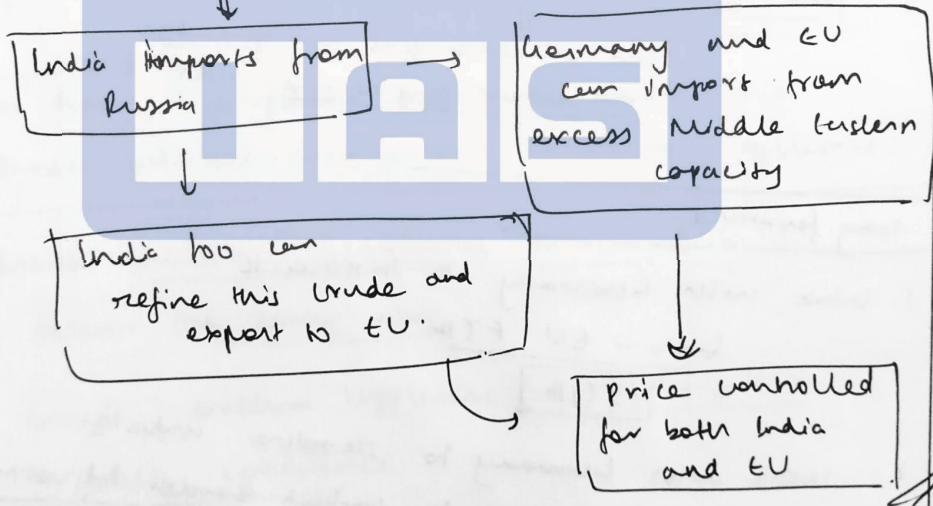 India imports from
Russia
Germany and EU
can import from
excess Middle Eastern
capacity
India too can
refine this crude and
export to EU.
price controlled
for both India
and EU
IAS